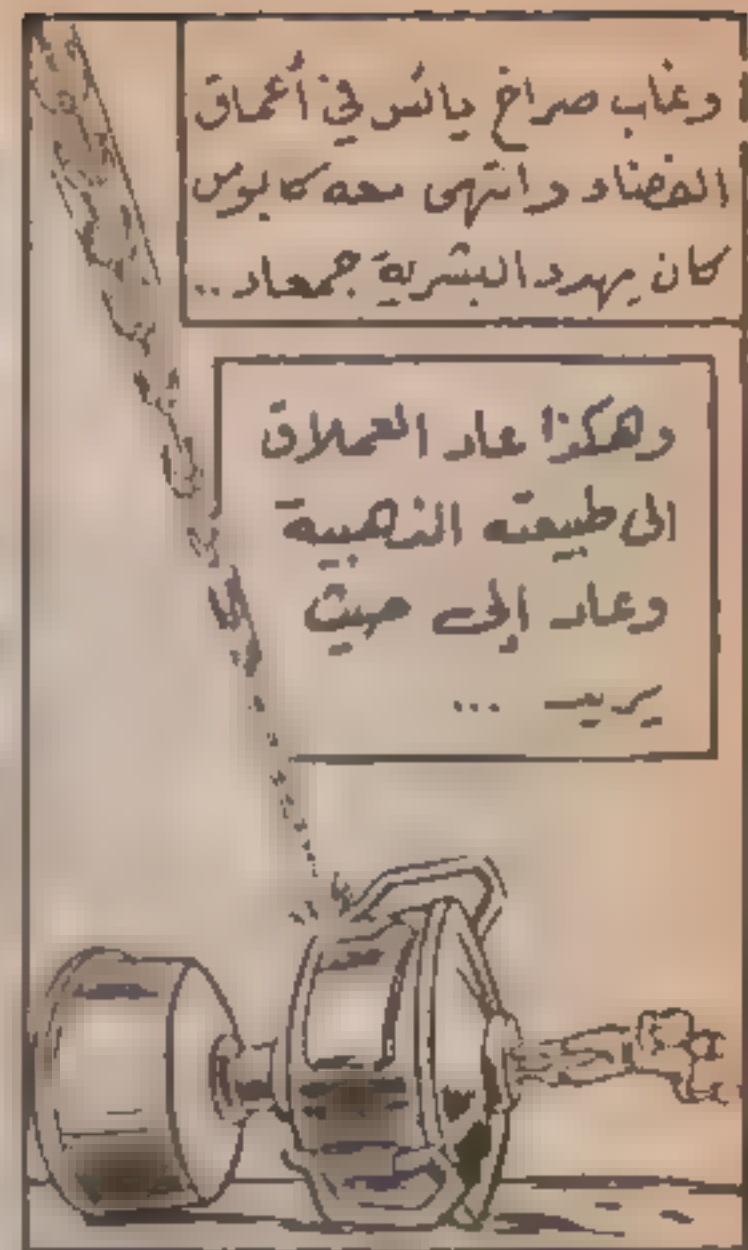 وغاب صراخ يائس في أعماق
الفضاء وانتهى معه كابوس
كان يهدد البشرية جمعاء..
وهكذا عاد العملاق
الى طبيعته الذهبية
وعاد إلى حيث
يريد ...